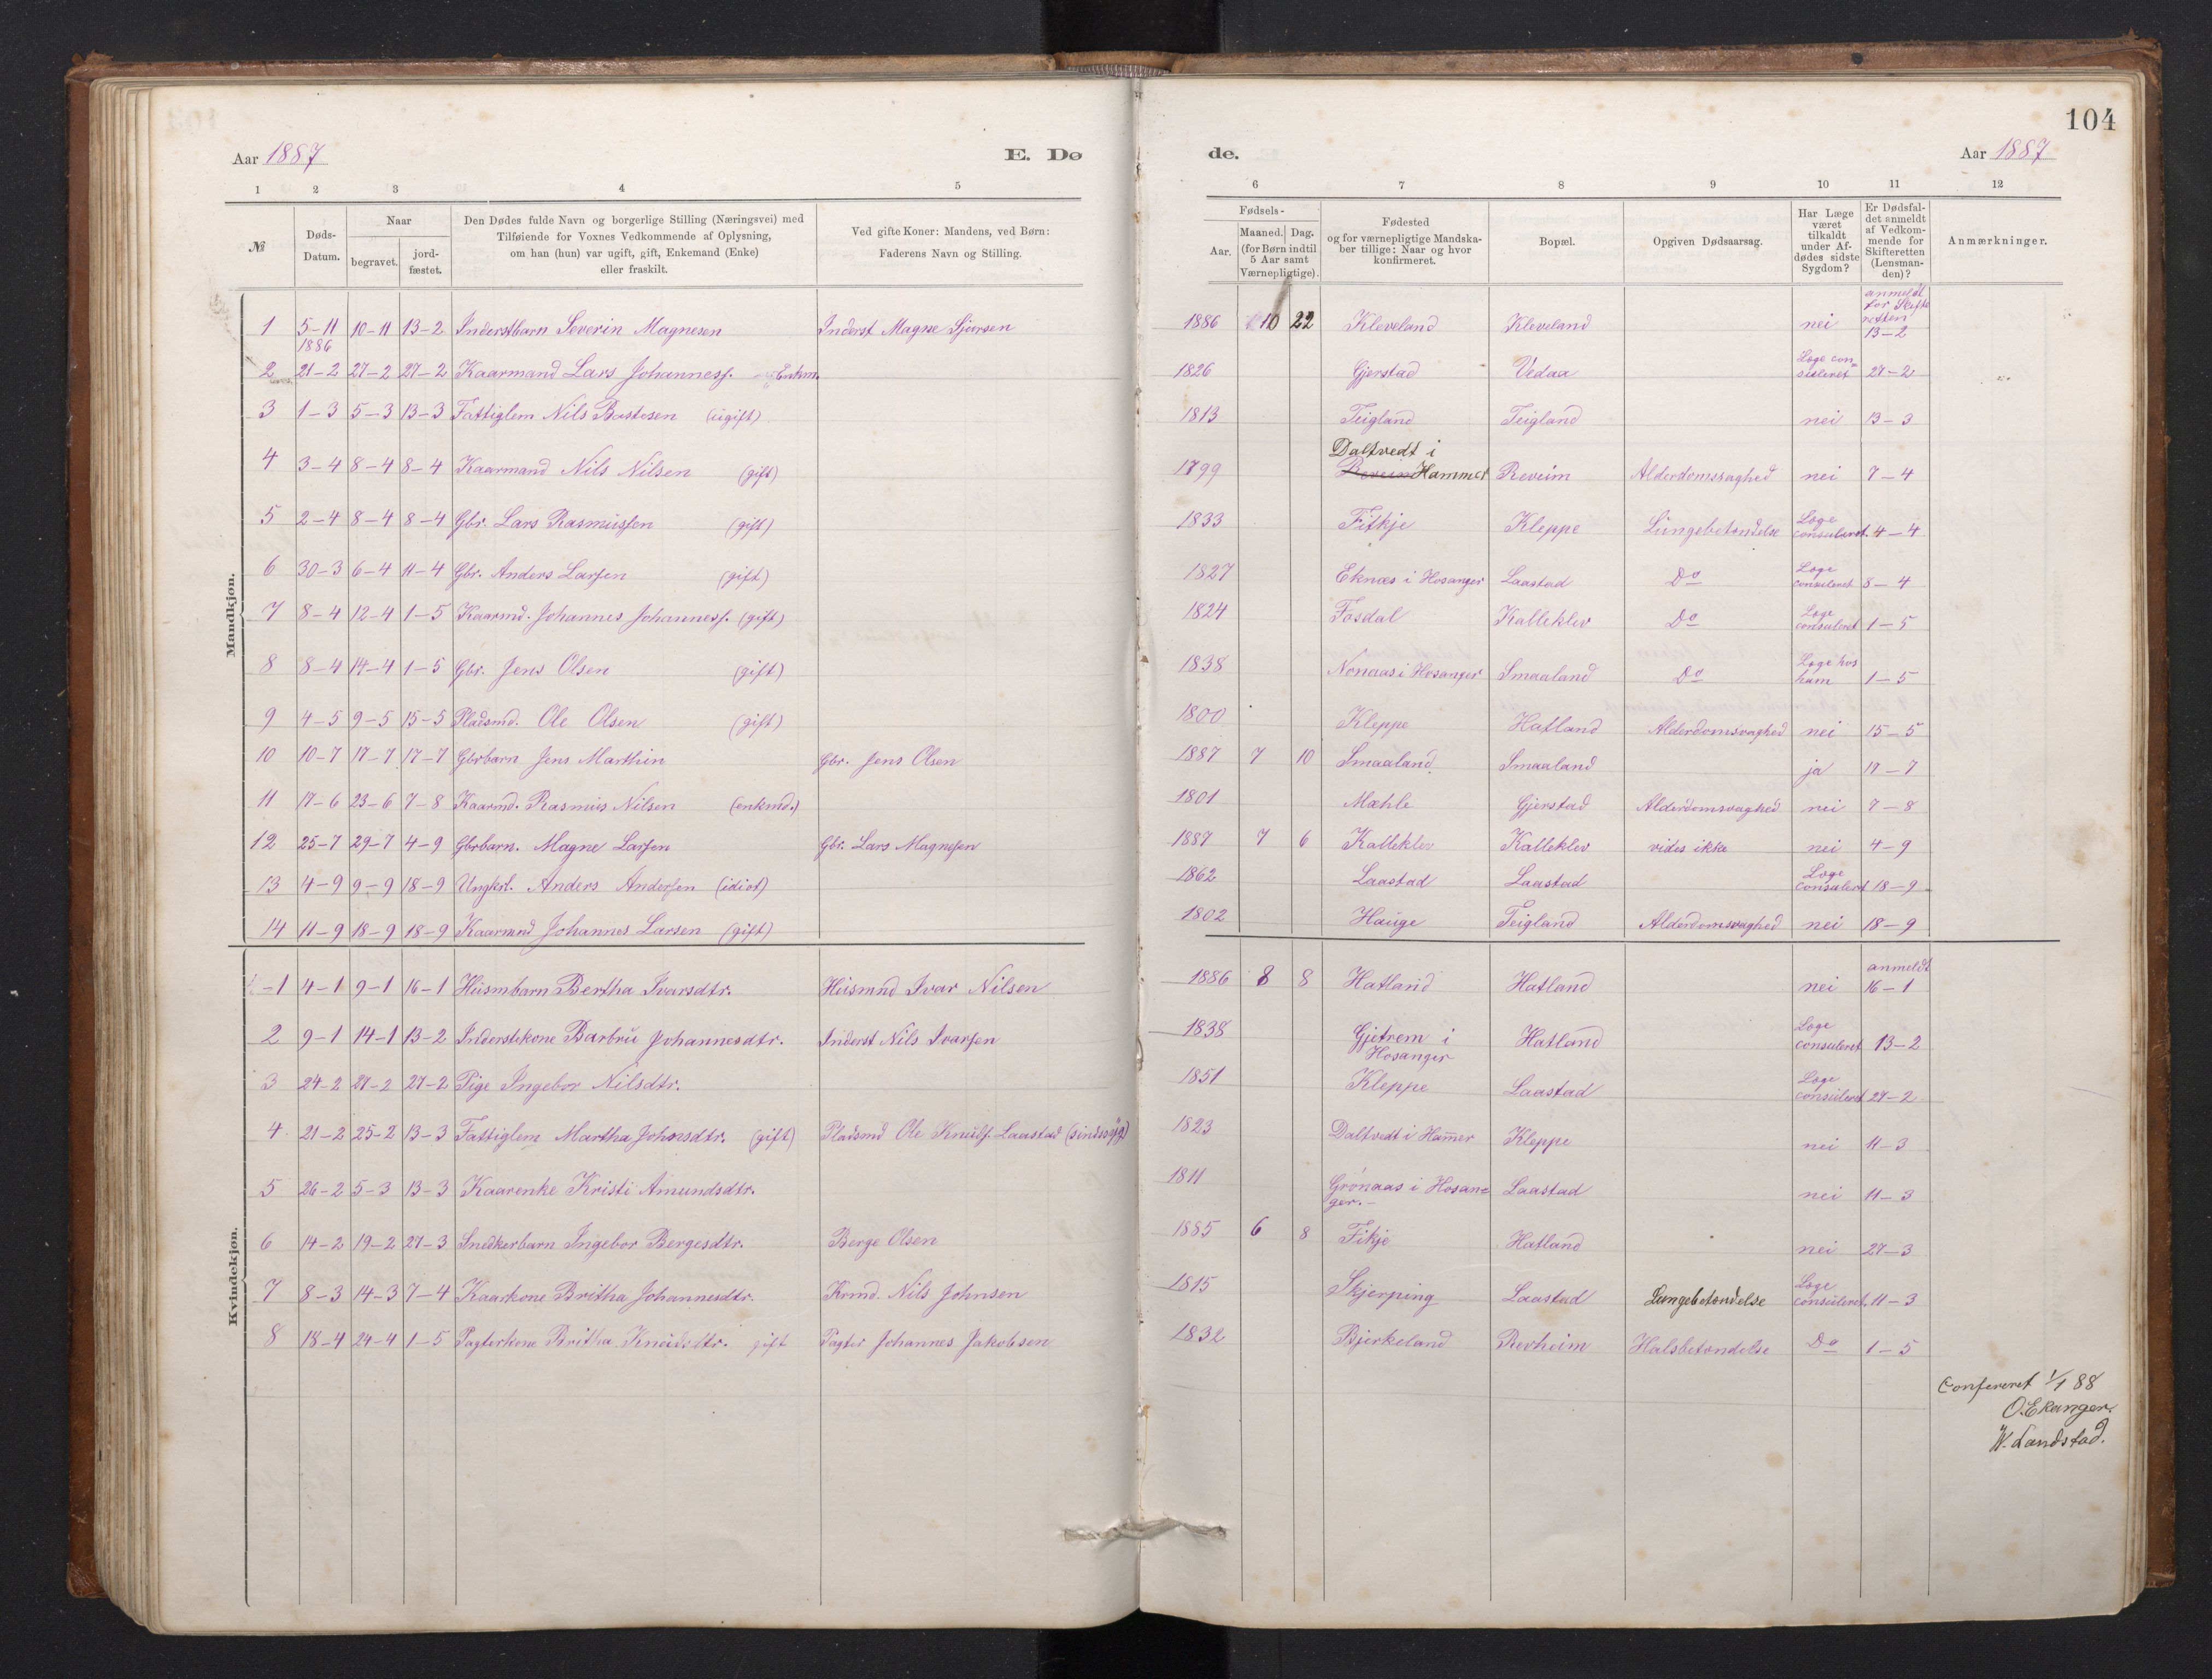 104
Aar 1887 E. Dø de. Aar 1887
1 2 3 4 5 6 7 8 9 10 11 12
№ Døds-Datum. Naar begravet. jordfæstet. Den Dødes fulde Navn og borgerlige Stilling (Næringsvei) med Tilføiende for Voxnes Vedkommende af Oplysning, om han (hun) var ugift, gift, Enkemand (Enke) eller fraskilt. Ved gifte Koner: Mandens, ved Børn: Faderens Navn og Stilling. Fødsels- Aar. Maaned. Dag. (for Børn indtil 5 Aar samt Værnepligtige). Fødested og for værnepligtige Mandskaber tillige: Naar og hvor konfirmeret. Bopæl. Opgiven Dødsaarsag. Har Læge været tilkaldt under Afdødes sidste Sygdom? Er Dødsfaldet anmeldt af Vedkommende for Skifteretten (Lensmanden)? Anmærkninger.
Mandkjøn.
1 5-11 1886 10-11 13-2 Inderstbarn Severin Magnesen Inderst Magne Sjursen 1886 10 22 Kleveland Kleveland nei anmeldt for Skifteretten 13-2
2 21-2 27-2 27-2 Kaarmand Lars Johannesf. Enkm. 1826 Gjerstad Vedaa Læge consuleret 27-2
3 1-3 5-3 13-3 Fattiglem Nils Bastesen (ugift) 1813 Teigland Teigland nei 13-3
4 3-4 8-4 8-4 Kaarmand Nils Nilsen (gift) 1799 Daltvedt i Reveim Hammer Reveim Alderdomssvaghed nei 7-4
5 2-4 8-4 8-4 Gbr. Lars Rasmusfen (gift) 1833 Fitkje Kleppe Lungebetændelse Læge consuleret. 4-4
6 30-3 6-4 11-4 Gbr. Anders Larfen (gift) 1827 Eknæs i Hosanger Laastad Do Læge consuleret 8-4
7 8-4 12-4 1-5 Kaarmd. Johannes Johannesf. (gift) 1824 Fosdal Kalleklev Do Læge consuleret 1-5
8 8-4 14-4 1-5 Gbr. Jens Olsen (gift) 1838 Nonaas i Hosanger Smaaland Do Læge hos ham 1-5
9 4-5 9-5 15-5 Pladsmd. Ole Olsen (gift) 1800 Kleppe Hatland Alderdomsvaghed nei 15-5
10 10-7 17-7 17-7 Gbrbarn Jens Marthin Gbr. Jens Olsen 1887 7 10 Smaaland Smaaland ja 17-7
11 17-6 23-6 7-8 Kaarmd. Rasmus Nilsen (enkmd.) 1801 Mæhle Gjerstad Alderdomsvaghed nei 7-8
12 25-7 29-7 4-9 Gbrbarn. Magne Larfen Gbr. Lars Magnefen 1887 7 6 Kalleklev Kalleklev vides ikke nei 4-9
13 4-9 9-9 18-9 Ungkrl. Anders Anderfen (idiot) 1862 Laastad Laastad Læge consuleret 18-9
14 11-9 18-9 18-9 Kaarmnd Johannes Larsen (gift) 1802 Hauge Teigland Alderdomsvaghed nei 18-9
Kvindekjøn.
1 4-1 9-1 16-1 Husmbarn Bertha Ivarsdtr. Husmnd Ivar Nilsen 1886 8 8 Hatland Hatland nei anmeldt 16-1
2 9-1 14-1 13-2 Inderstkone Barbru Johannesdtr. Inderst Nils Ivarfen 1838 Gjetrem i Hosanger Hatland Læge consuleret 13-2
3 24-2 27-2 27-2 Pige Ingebor Nilsdtr. 1851 Kleppe Laastad Læge consuleret 27-2
4 21-2 25-2 13-3 Fattiglem Martha Johnsdtr. (gift) Pladsmd Ole Knutf. Laastad (sindssyg) 1823 Daltvedt i Hamer Kleppe nei 11-3
5 26-2 5-3 13-3 Kaarenke Kristi Amundsdtr. 1811 Grønaas i Hosanger.- Laastad nei 11-3
6 14-2 19-2 27-3 Snedkerbarn Ingebor Bergesdtr. Berge Olsen 1885 6 8 Fikje Hatland nei 27-3
7 8-3 14-3 7-4 Kaarkone Britha Johannesdtr. Krmd. Nils Johnsen 1815 Skjerping Laastad Lungebetændelse Læge consuleret. 11-3
8 18-4 24-4 1-5 Pagterkone Britha Knudsdtr. gift Pagter Johannes Jakobsen 1832 Bjerkeland Revheim Halsbetændelse Do 1-5
Confereret 1/1 88
O. Ekanger.
W. Landstad.